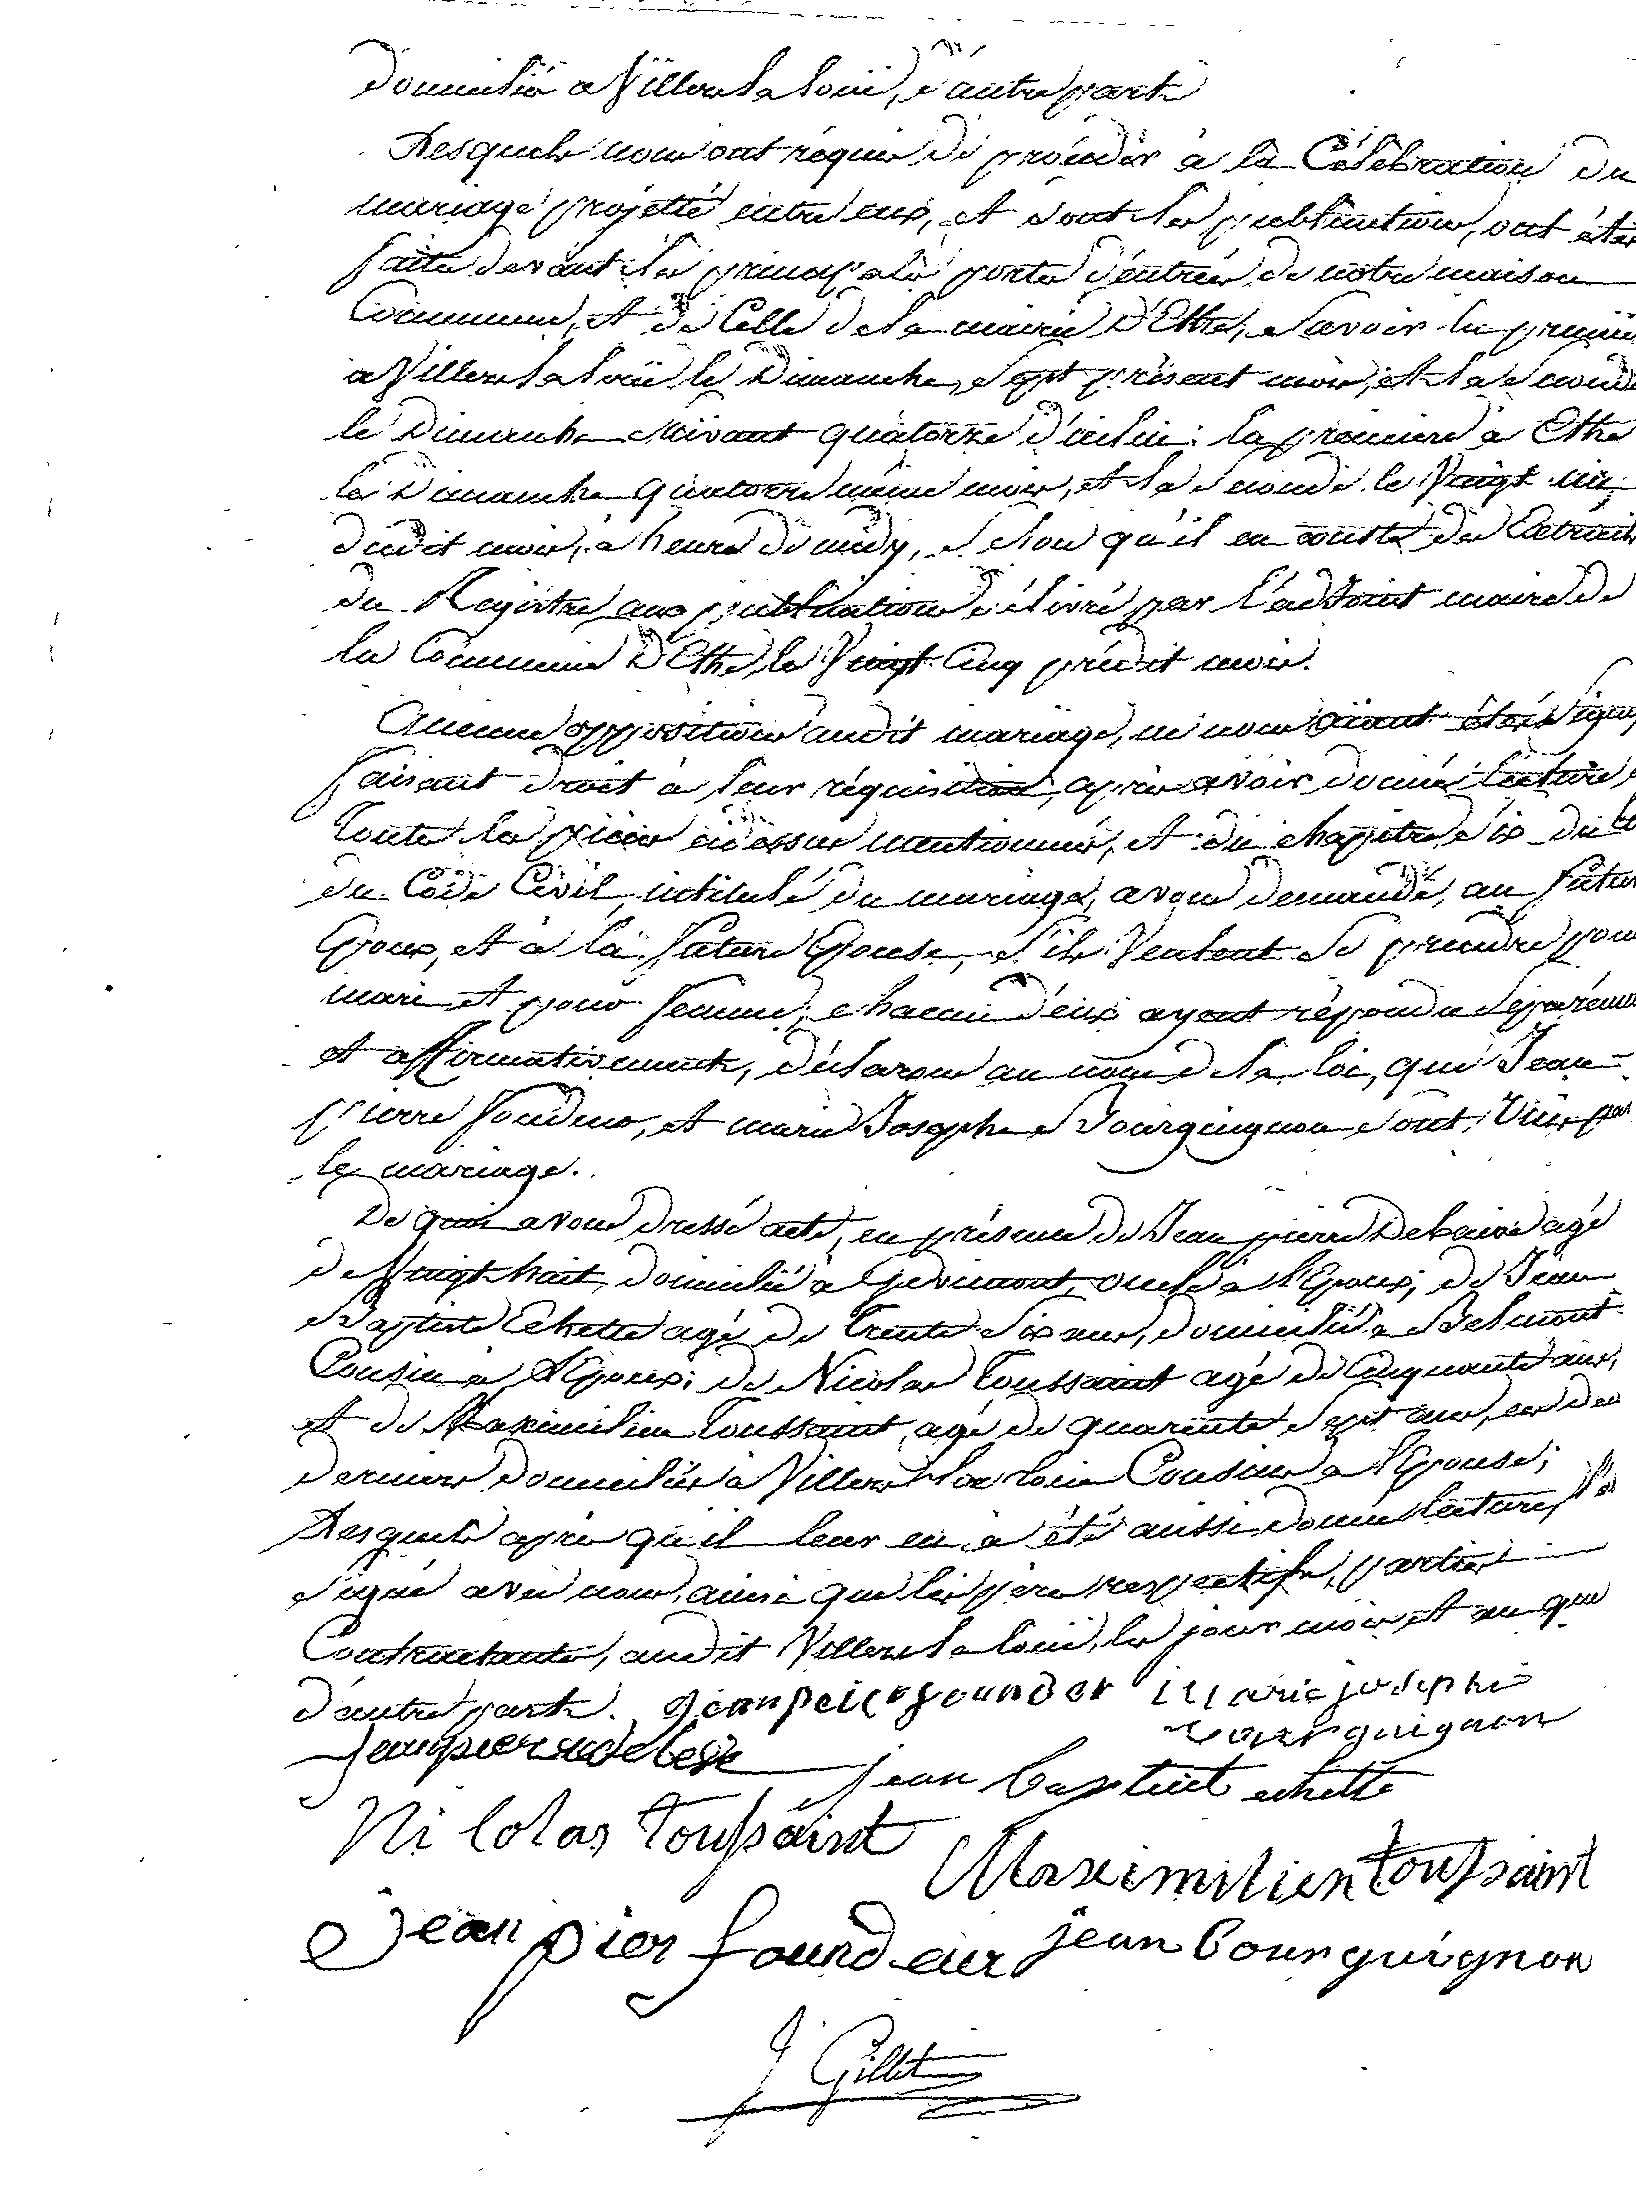 domicilié a Villers la loüe, d'autre part
Lesquels nous ont réquis de procéder à la Célébration du
mariage projetté entre eux, et dont les publications, ont étés
faites devant la principale porte d'entrée de notre maison
Commune, et de Celle de la mairie D'Ethe, Savoir la premie
a Villers la loüe le Dimanche, Sept présent mois, et la Seconde
le Dimanche suivant quatorze d'icelui; la premiere à Ethe
le Dimanche quatorze même mois, et la Seconde le Vingt un
dudit mois, à heure de midy, Selon qu'il en conste des Extraits
du Registre aux publications délivré par l'adjoint maire de
la Commune D'Ethe, le Vingt Cinq prédit mois.
Aucune opposition audit mariage, ne nous aiant étée Signi
faisant droit à leur réquisition, après avoir donné lecture
toutes les pièces cidessus mentionnées, et du chapitre Six du
du Code Civil, intitulé du mariage, avons demandé, au futur
Epoux, et à la future Epouse, S'ils Veulent Se prendre pour
mari et pour femme; chacun d'eux ayant répondu Séparéme
et affirmativement, déclarons au nom de la loi, que Jean
pierre foudeur, et marie Josephe Bourguignon Sont Unis par
le mariage.
De quoi avons dressé acte, en présence de Jean pierre Delaive agé
de Vingt huit, domicilié à Gerimont, oncle a l'Epoux; de Jean
Baptiste Echette agé de trente Six ans, domicilié a Belmont
Cousin a l'Epoux; de Nicolas Toussaint agé de Cinquante ans,
et de Maximilien Toussaint agé de quarente Sept ans, ces deux
derniers domiciliés a Villers la loüe Cousins a l'Epouse;
Lesquels après qu'il leur en a été aussi donné lecture,
Signé avec nous, ainsi que les pères respectifs, parties
Contractantes, audit Villers la loüe, les jour mois et an que
d'autre part. Jean peier founder Marie josephe
bourguignon
jean baptist echette
Nicolas toussaint
Maximilien toussaint
Jean pier foundeur jean bourguignon
J Gillet